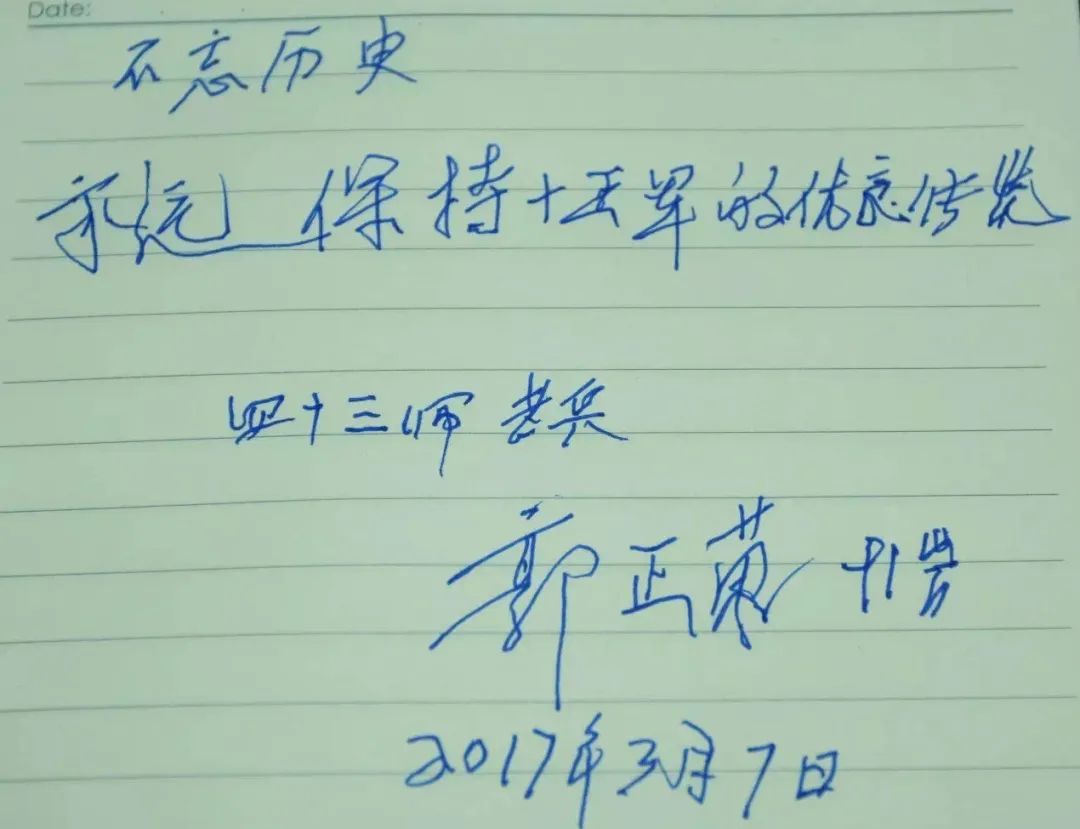 Date:
不忘历史
永远保持十五军的优良传统
四十三师 老兵
郭正 岁
2017年3月7日